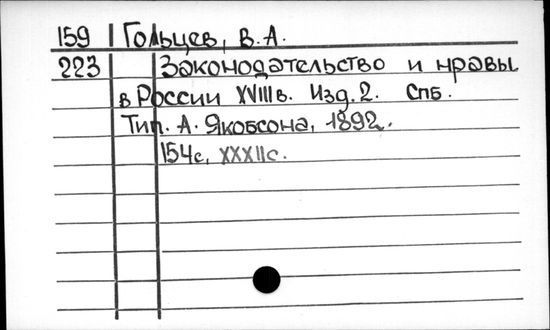 159 Гольцев, В.А.
223 Законодательство и нравы
в России XVIIIв. Изд.2. СПб.
Тип. А. Якобсона, 1892.
154с, XXXIIс.